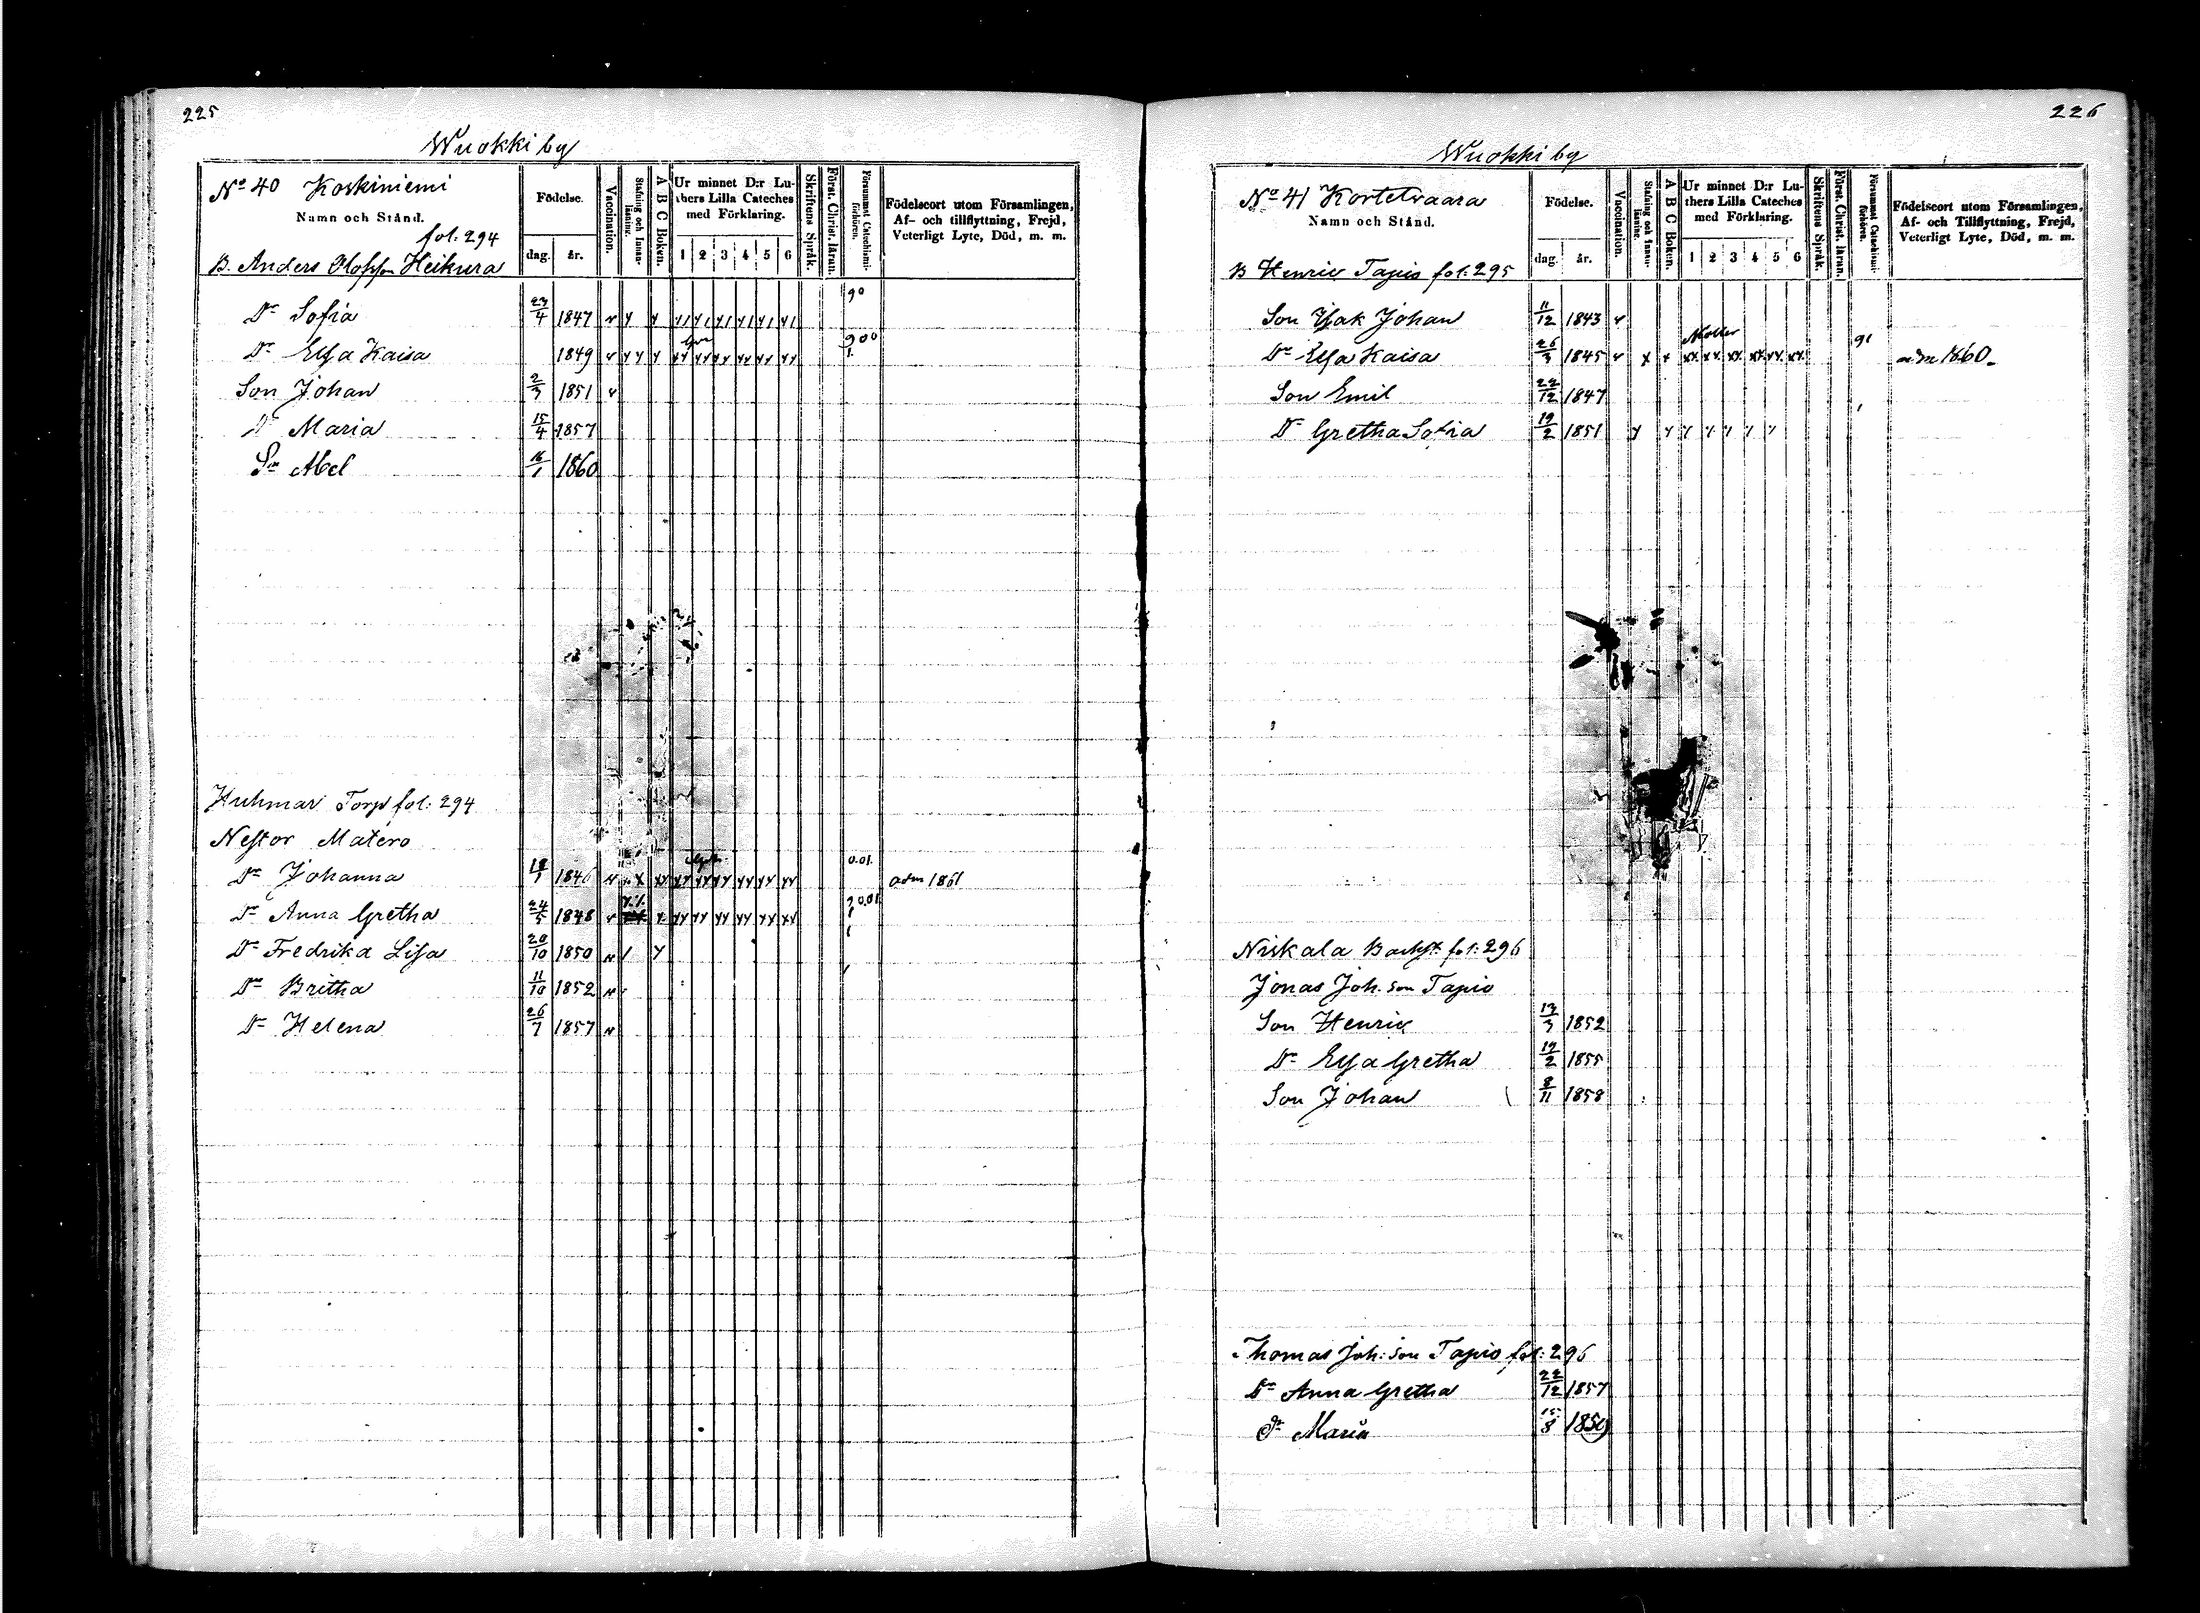 225
Wuokki by
No 40 Koskiniemi
Namn och Stånd.
fol: 294
B. Anders Olofsson Heikura
Födelse.
dag. år.
Vaccination.
Stafning och Innan-läsning.
A B C Boken.
Ur minnet D:r Lu-
thers Lilla Cateches
med Förklaring.
1 2 3 4 5 6
Skriftens Språk.
Först. Christ. läran.
Försummat Catechismi-förhören.
Födelseort utom Församlingen,
Af- och tillflyttning, Frejd,
Veterligt Lyte, Död, m. m.
Dr Sofia 23/4 1847
Dr Elsa Kaisa 1849
Son Johan 2/3 1851
Dr Maria 15/4 1857
Sn Abel 16/1 1860
Huhmar Torp fol: 294
Nestor Matero
Dr Johanna 1846 adm 1861
Dr Anna Gretha 24/5 1848
Dr Fredrika Lisa 20/10 1850
Dr Britha 11/10 1852
Dr Helena 26/7 1857
226
Wuokki by
No 41 Kortetvaara
Namn och Stånd.
B Henric Tapio fol: 295
Födelse.
dag. år.
Vaccination.
Stafning och Innan-läsning.
A B C Boken.
Ur minnet D:r Lu-
thers Lilla Cateches
med Förklaring.
1 2 3 4 5 6
Skriftens Språk.
Först. Christ. läran.
Försummat Catechismi-förhören.
Födelseort utom Församlingen,
Af- och Tillflyttning, Frejd,
Veterligt Lyte, Död, m. m.
Son Isak Johan 11/12 1843
Dr Elsa Kaisa 26/3 1845 adm 1860
Son Emil 22/12 1847
Dr Gretha Sofia 19/2 1851
Niskala Backst. fol: 296
Jonas Joh. son Tapio
Son Henric 1852
Dr Elsa Gretha 19/2 1855
Son Johan 8/11 1858
Thomas Joh: son Tapio fol: 296
Dr Anna Gretha 22/12 1857
Dr Maria 15/8 1859